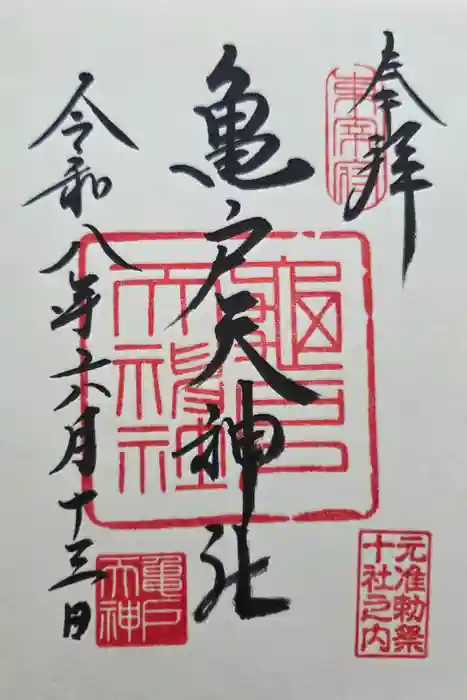 奉拝
東宰府
亀戸天神社
龜戸
天神社
元准勅祭
十社之内
令和八年六月十三日
龜戸
天神